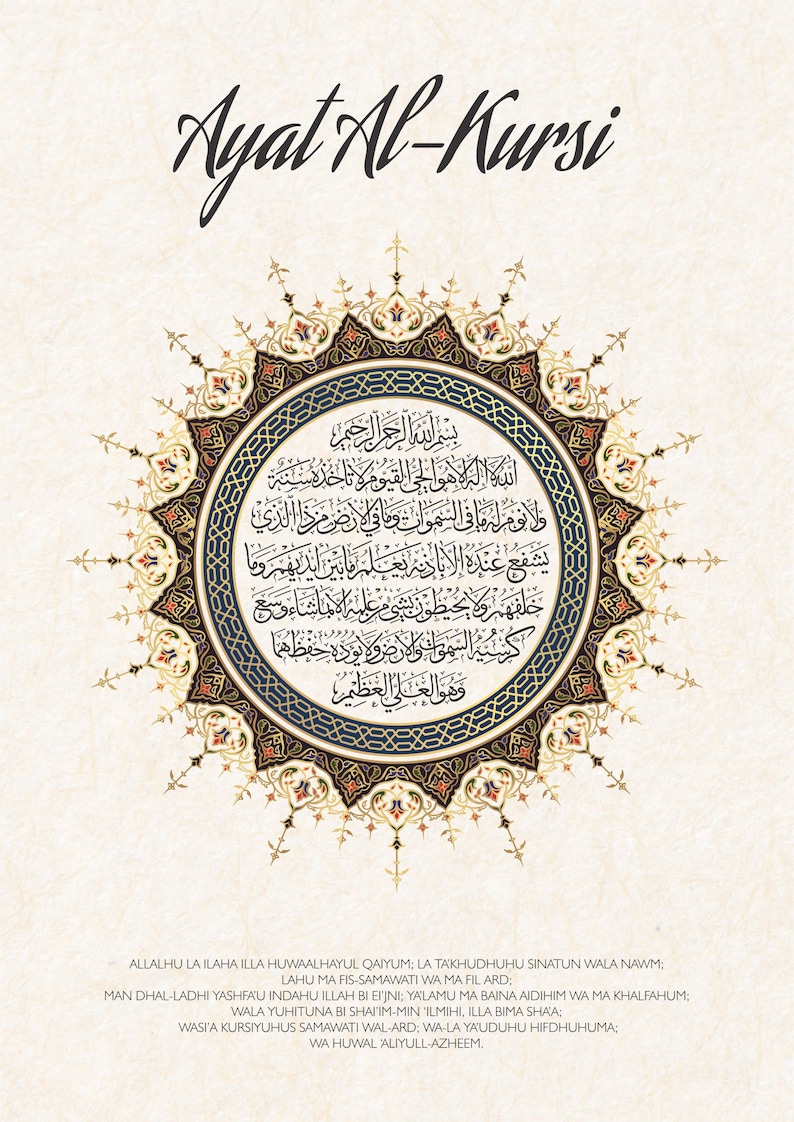 Ayat Al-Kursi
بسم الله الرحمن الرحيم
الله لا اله الا هو الحي القيوم لا تاخذه سنة
ولا نوم له ما في السموات وما في الارض من ذا الذي
يشفع عنده الا باذنه يعلم ما بين ايديهم وما
خلفهم ولا يحيطون بشيء من علمه الا بما شاء وسع
كرسيه السموات والارض ولا يوده حفظهما
وهو العلي العظيم
ALLALHU LA ILAHA ILLA HUWAALHAYUL QAIYUM; LA TA'KHUDHUHU SINATUN WALA NAWM;
LAHU MA FIS-SAMAWATI WA MA FIL ARD;
MAN DHAL-LADHI YASHFA'U INDAHU ILLAH BI EI'JNI; YA'LAMU MA BAINA AIDIHIM WA MA KHALFAHUM;
WALA YUHITUNA BI SHAI'IM-MIN 'ILMIHI, ILLA BIMA SHA'A;
WASI'A KURSIYUHUS SAMAWATI WAL-ARD; WA-LA YA'UDUHU HIFDHUHUMA;
WA HUWAL 'ALIYULL-AZHEEM.